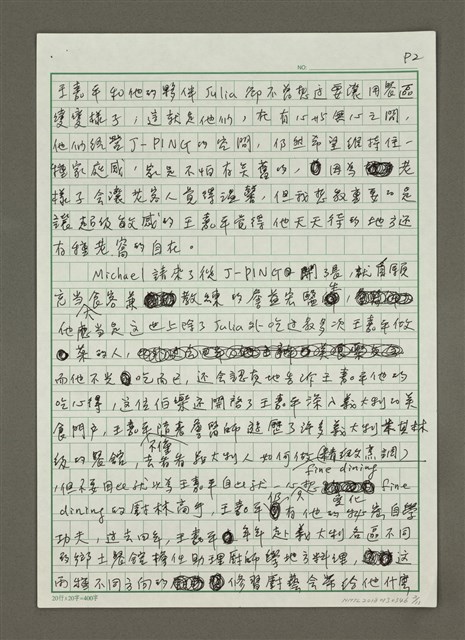 P2
NO:
王嘉平和他的夥伴Julia卻不曾想過要讓用餐區
變變樣子;這就是他們,在有心與無心之間,
他們經營J-PING的空間,仍然希望維持住一
種家庭感,家是不怕有點舊的,因為老
樣子會讓老客人覺得溫馨,但我想最重要的是
讓超級敏感的王嘉平覺得他天天待的地方還
有種老窩的自在。
Michael 請來了從J-PING開了張,就自願
充當食客兼教練的詹益宏醫生,
他大概當是這世上除了Julia外吃過最多次王嘉平做
菜的人,
而他不光吃而已,还會認真地告訴王嘉平他的
吃心得,這位伯樂还開啟了王嘉平深入義大利的美
食門戶,王嘉平隨着詹醫師遊歷了許多義大利米其林
級的餐館,不僅去看看義大利人如何做精緻烹調
fine dining
,但不要因此就以為王嘉平自此就一心想fine
dining的廚林高手,王嘉平仍只有他的自學
變化
功夫,過去四年,王嘉平年年赴義大利各區不同
的鄉土餐館擔任助理廚師學地方料理,這
兩種不同方向的修習廚藝會帶給他什麼
20行×20字=400字